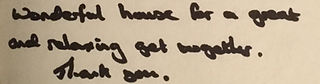 Wonderful house for a great
and relaxing get together.
Thank you.